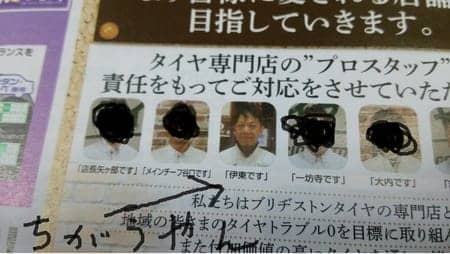 目指していきます。
タイヤ専門店の”プロスタッフ”
責任をもってご対応をさせていただ
「店長矢ヶ部です」
「メインチーフ谷口です」
「伊東です」
「一坊寺です」
「大内です」
私たちはブリヂストンタイヤの専門店と
地域の皆さまのタイヤトラブル0を目標に取り組
また付加価値の高
ちがうやん